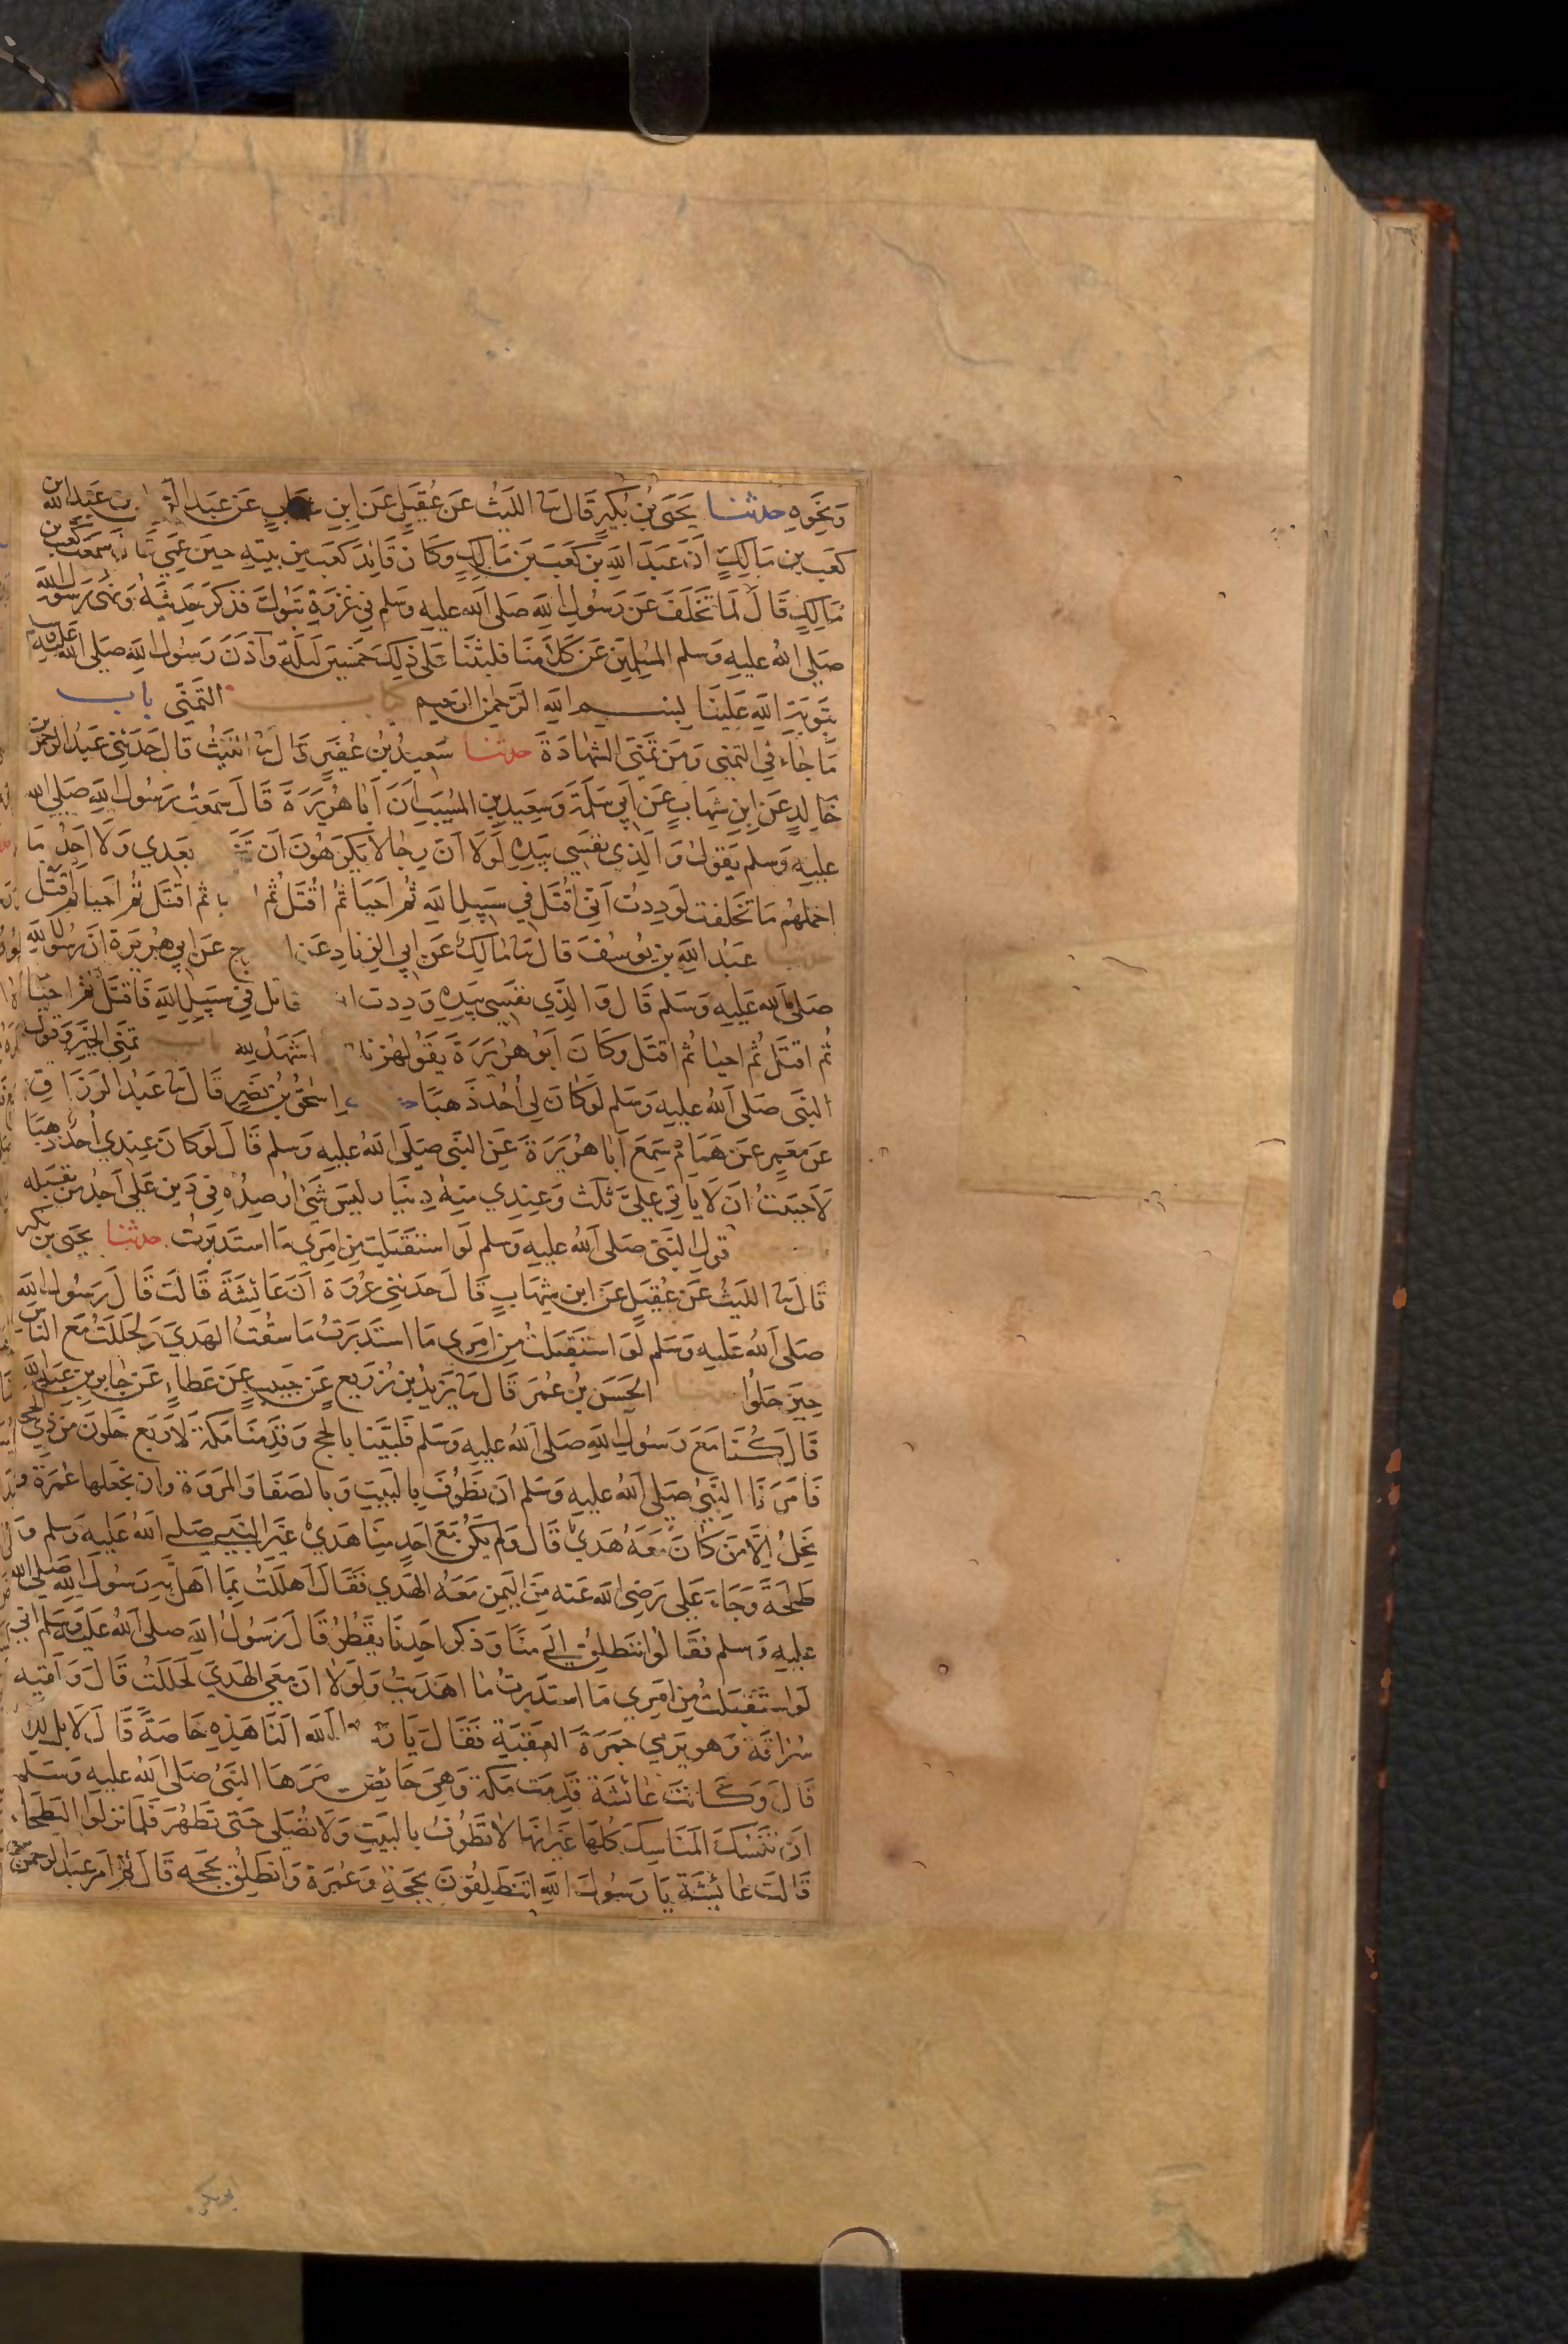 ونحوه حدثنا يحيى بن بكير قال ثنا الليث عن عقيل عن ابن عن عبد بن عبد الله بن
كعب بن مالك أن عبد الله بن كعب بن مالك وكان قائد كعب من بنيه حين عمي قال سمعت كعب بن
مالك قال لما تخلف عن رسول الله صلى الله عليه وسلم في غزوة تبوك فذكر حديثه ونهى رسول الله
صلى الله عليه وسلم المسلمين عن كلامنا فلبثنا على ذلك خمسين ليلة وآذن رسول الله صلى الله عليه وسلم
بتوبة الله علينا بسم الله الرحمن الرحيم كتاب التمني باب
ما جاء في التمني ومن تمنى الشهادة حدثنا سعيد بن عفير قال ثنا الليث قال حدثني عبد الرحمن بن
خالد عن ابن شهاب عن أبي سلمة وسعيد بن المسيب أن أبا هريرة قال سمعت رسول الله صلى الله
عليه وسلم يقول والذي نفسي بيده لولا أن رجالا يكرهون أن بعدي ولا أجد ما
احملهم ما تخلفت لوددت أني أقتل في سبيل الله ثم أحيا ثم أقتل ثم ثم اقتل ثم احيا ثم اقتل
حدثنا عبد الله بن يوسف قال ثنا مالك عن أبي الزناد عن ج عن أبي هريرة أن رسول الله
صلى الله عليه وسلم قال والذي نفسي بيده وددت قاتل في سبيل الله فاقتل ثم احيا
ثم اقتل ثم احيا ثم اقتل وكان أبو هريرة يقولهن اشهد لله باب تمني الخير وقول
النبي صلى الله عليه وسلم لو كان لي أحد ذهبا إسحق بن نصر قال ثنا عبد الرزاق
عن معمر عن همام سمع أبا هريرة عن النبي صلى الله عليه وسلم قال لو كان عندي أحد ذهبا
لأحببت أن لا يأتي علي ثلث وعندي منه دينار ليس شيء أرصده في دين علي أجد من يقبله
قول النبي صلى الله عليه وسلم لو استقبلت من امري ما استدبرت حدثنا يحيى بن بكير
قال ثنا الليث عن عقيل عن ابن شهاب قال حدثني عروة أن عائشة قالت قال رسول الله
صلى الله عليه وسلم لو استقبلت من امري ما استدبرت ما سقت الهدي ولحللت مع الناس
حين حلوا حدثنا الحسن بن عمر قال ثنا يزيد بن زريع عن حبيب عن عطاء عن جابر بن عبد الله
قال كنا مع رسول الله صلى الله عليه وسلم فلبينا بالحج وقدمنا مكة لأربع خلون من ذي الحجة
فأمرنا النبي صلى الله عليه وسلم أن نطوف بالبيت وبالصفا والمروة وان نجعلها عمرة
نحل إلا من كان معه هدي قال ولم يكن مع احد منا هدي غير النبي صلى الله عليه وسلم و
طلحة وجاء علي رضي الله عنه من اليمن معه الهدي فقال أهللت بما أهل به رسول الله صلى الله
عليه وسلم فقالوا ننطلق إلى منا وذكر احدنا يقطر قال رسول الله صلى الله عليه وسلم اني
لو استقبلت من امري ما استدبرت ما اهديت ولولا ان معي الهدي لحللت قال ولقيه
سراقة وهو يرمي جمرة العقبة فقال يا الله ألنا هذه خاصة قال لا بل لأبد
قال وكانت عائشة قدمت مكة وهي حائض مرها النبي صلى الله عليه وسلم
ان تنسك المناسك كلها غير انها لا تطوف بالبيت ولا تصلي حتى تطهر فلما نزلوا البطحاء
قالت عائشة يا رسول الله اتنطلقون بحجة وعمرة وانطلق بحجه قال ثم امر عبد الرحمن